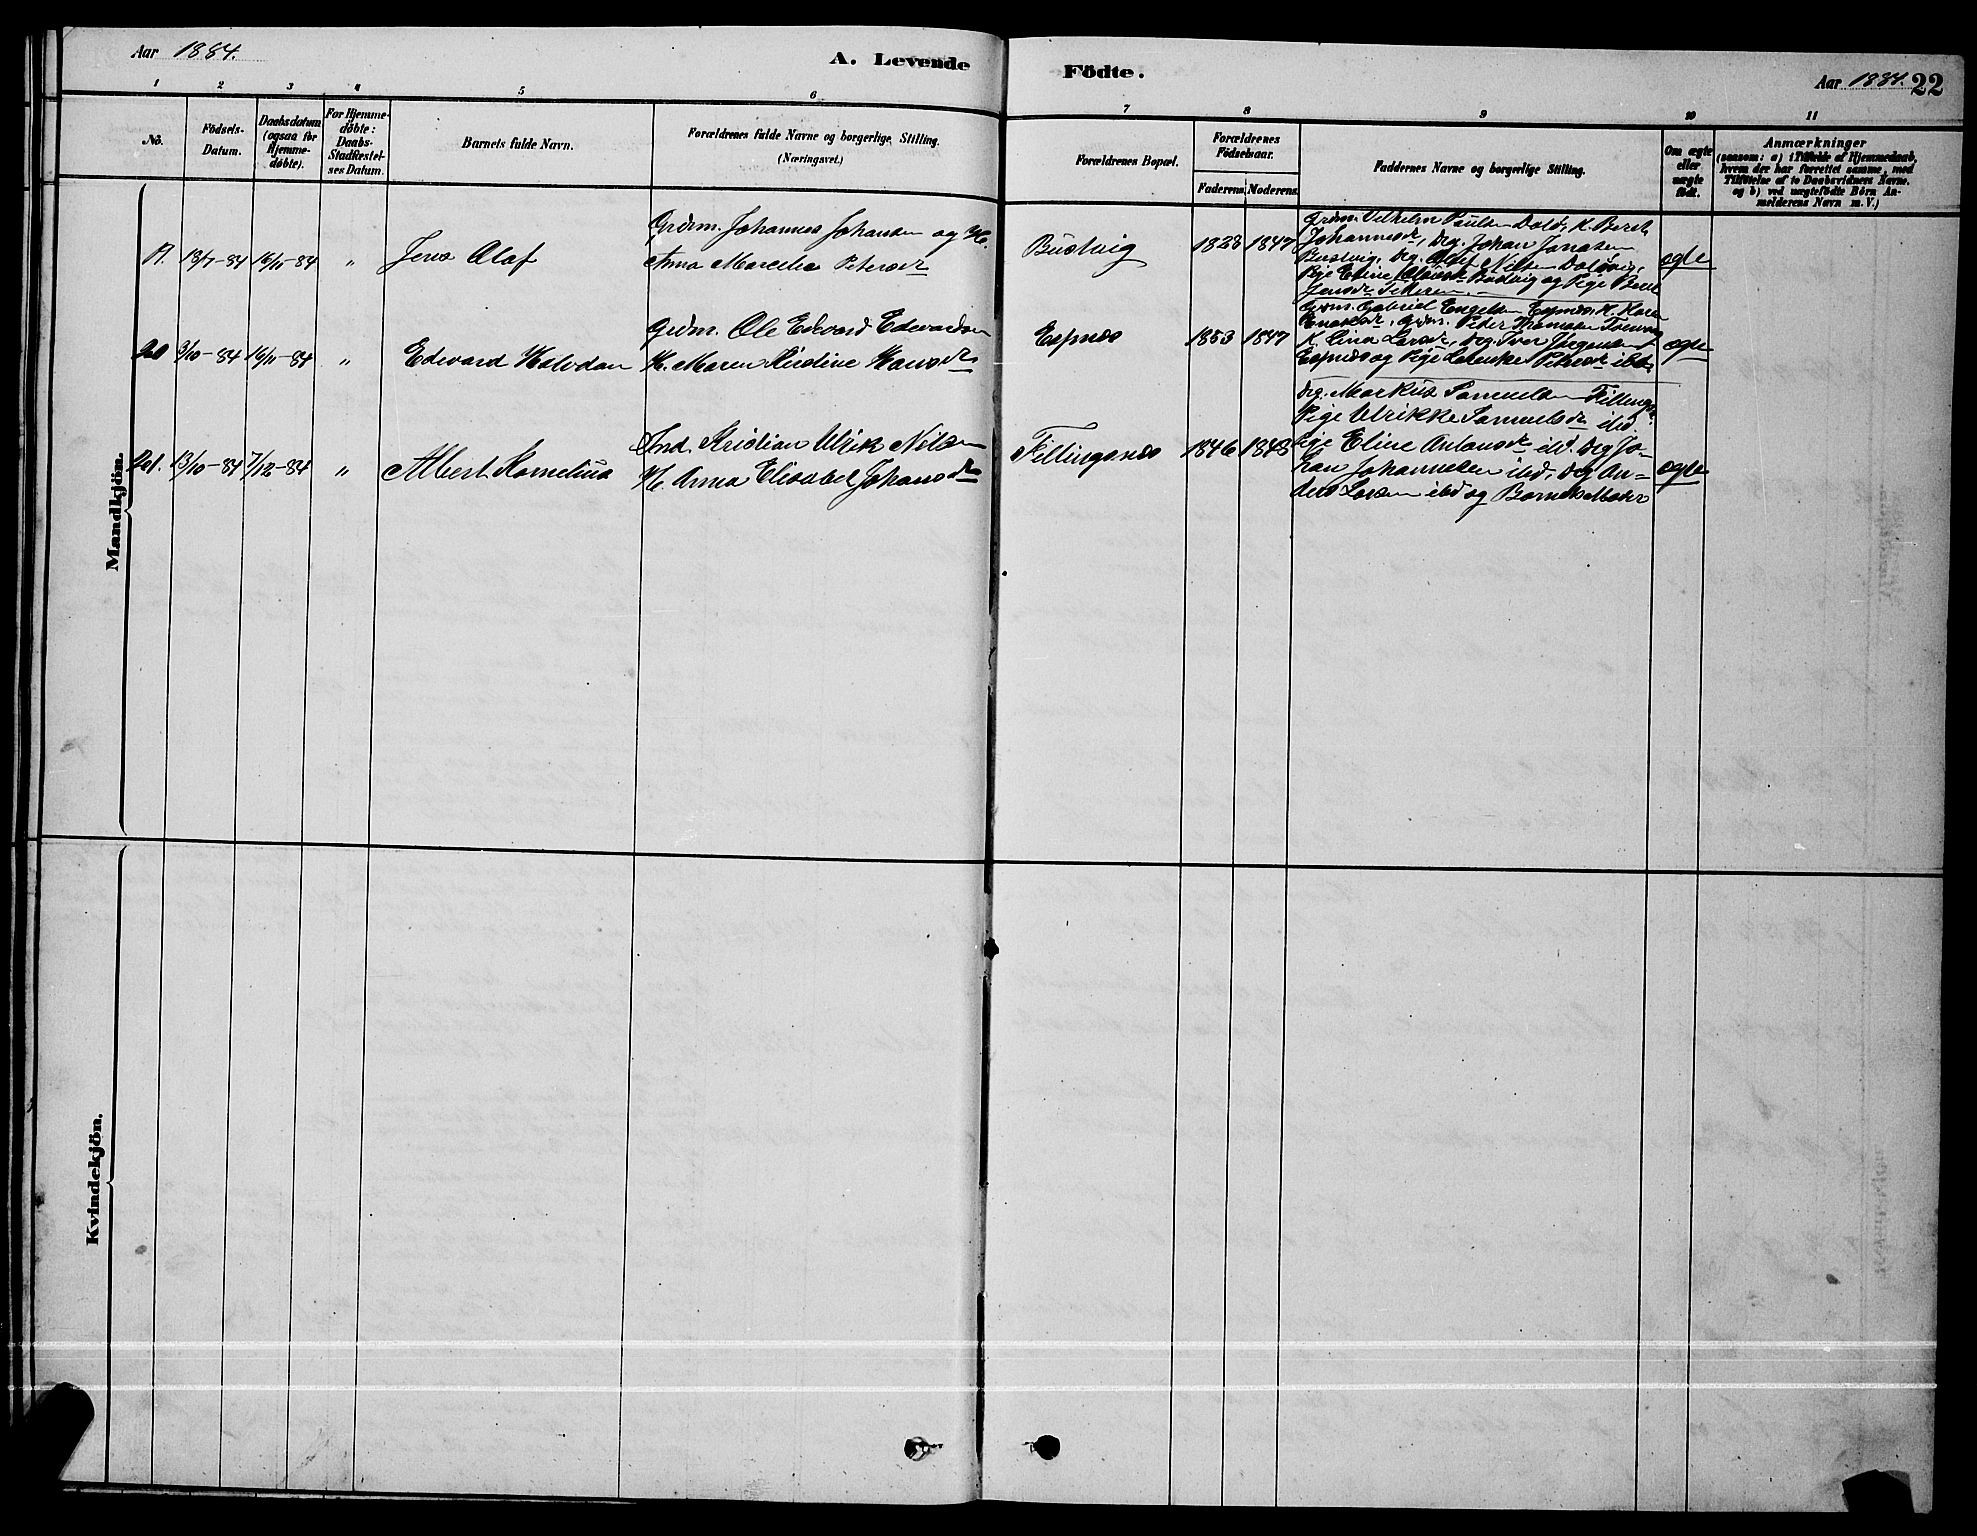 Aar 1884.
A. Levende
Födte.
Aar 1884. 22
1 2 3 4 5 6
7 8 9 10 11
No.
Födsels-
Datum.
Daabsdatum
(ogsaa for
Hjemme-
døbte).
For Hjemme-
døbte:
Daabs-
Stadfæstel-
ses Datum.
Barnets fulde Navn.
Forældrenes fulde Navne og borgerlige Stilling.
(Næringsvei.)
Forældrenes Bopæl.
Forældrenes
Födselsaar.
Faderens. Moderens.
Faddernes Navne og borgerlige Stilling.
Om ægte
eller
uægte
født.
Anmærkninger
(saasom: a) i Tilfælde af Hjemmedaab,
hvem der har forrettet samme, med
Tilføielse af to Daabsvidners Navne.
og b) ved uægtefødte Børn An-
melderens Navn m. V.)
Mandkjön.
13/7-84 16/11-84 " Jens Olaf
Grdm. Johannes Johansen og H.
Anna Marcelie Petersdr
Busvig 1828 1847
Grdm. Vilhelm Paulsen Dolø, K. Beret
Johannesdr, Drg. Johan Jonasen
Busvig, Drg. Nilsen Doløvig,
Pige Eline Busvig og Pige
Jensdr
ægte
20 3/10-84 16/11-84 " Edevard Halvdan
Grdm. Ole Edvard Edvardsen
H. Maren Kirstine Hansdr
Espnæs 1853 1847
Grdm. Gabriel Engelsen Espnæs, K. Karen
Grdm. Peder Thomasen
K. Lina Larsdr, Drg. Iver Jürgensen
Espnæs og Pige Petersdr ibd.
ægte
21. 13/10-84 7/12-84 " Albert Kornelius
Ind. Kristian Ulrik Nilsen
H. Anna Elisabet Johansdr
Fillingsnæs 1846 1848
Drg. Markus Samuelsen Fillingsn.
Pige Ulrikke Samuelsdr ibd.
Pige Eline Antonsdr ibd. Drg Jo-
han Johannesen ibd, Drg An-
ders Larsen ibd og Barnets Moder
ægte
Kvindekjön.